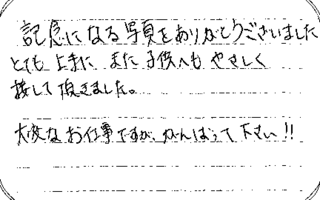 記念になる写真をありがとうございました
とても上手に また子供へも やさしく
接して頂きました。
大変なお仕事ですが、がんばって下さい!!